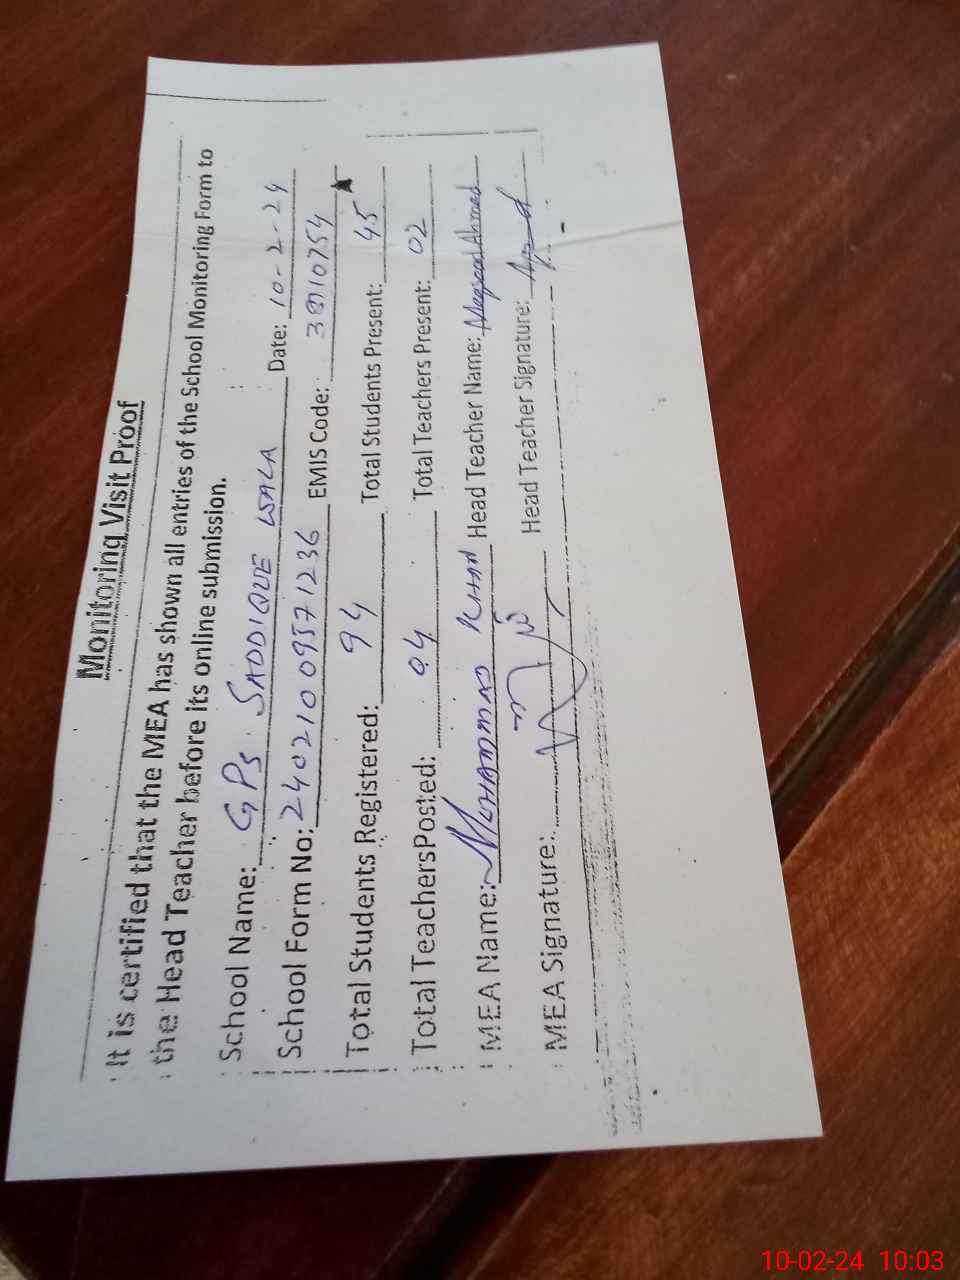 Monitoring Visit Proof
It is certified that the MEA has shown all entries of the School Monitoring Form to
the Head Teacher before its online submission.
School Name: GPS SADDIQUE WALA Date: 10-2-24
School Form No: 24021009571236 EMIS Code: 38110754
Total Students Registered: 94 Total Students Present: 45
Total TeachersPosted: 04 Total Teachers Present: 02
MEA Name: MUHAMMAD KHAN Head Teacher Name: Maqsood Ahmed
MEA Signature: Head Teacher Signature:
10-02-24 10:03